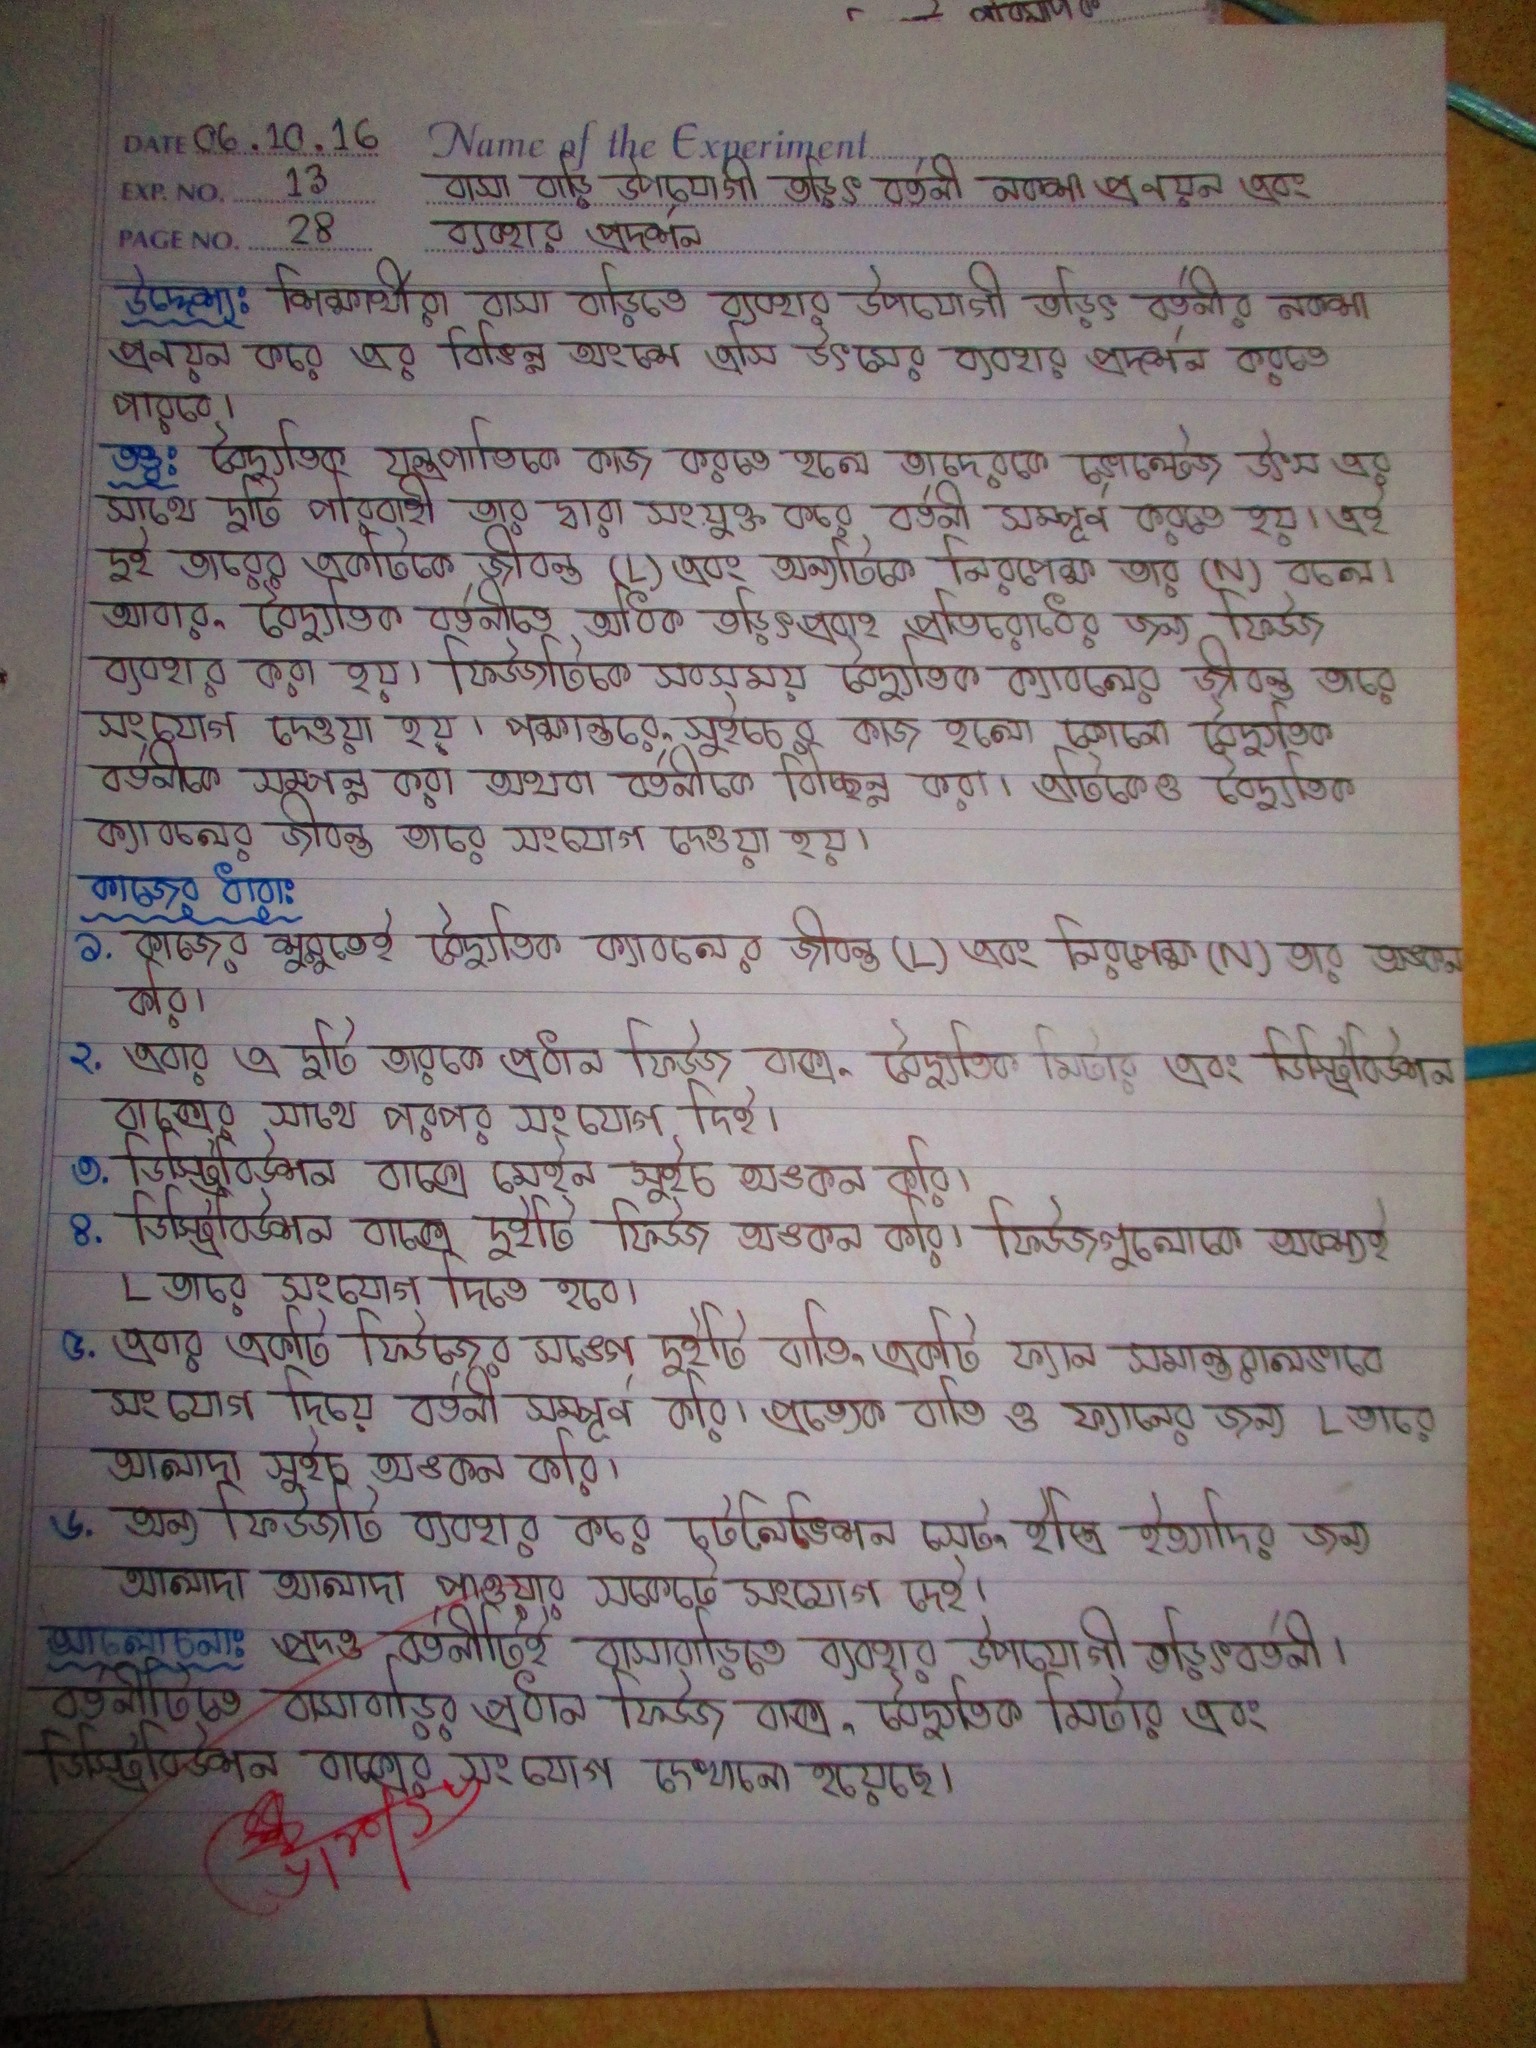 DATE 06.10.16 Name of the Experiment
EXP. NO. 13 বাসা বাড়ি উপযোগী তড়িৎ বর্তনী নকশা প্রনয়ন এবং
PAGE NO. 28 ব্যবহার প্রদর্শন
উদ্দেশ্য: শিক্ষার্থীরা বাসা বাড়িতে ব্যবহার উপযোগী তড়িৎ বর্তনীর নকশা
প্রনয়ন করে এর বিভিন্ন অংশে এসি উৎসের ব্যবহার প্রদর্শন করতে
পারবে।
তত্ত্ব: বৈদ্যুতিক যন্ত্রপাতিকে কাজ করতে হলে তাদেরকে ভোল্টেজ উৎস এর
সাথে দুটি পরিবাহী তার দ্বারা সংযুক্ত করে বর্তনী সম্পূর্ন করতে হয়। এই
দুই তারের একটিকে জীবন্ত (L) এবং অন্যটিকে নিরপেক্ষ তার (N) বলে।
আবার, বৈদ্যুতিক বর্তনীতে অধিক তড়িৎপ্রবাহ প্রতিরোধের জন্য ফিউজ
ব্যবহার করা হয়। ফিউজটিকে সবসময় বৈদ্যুতিক ক্যাবলের জীবন্ত তারে
সংযোগ দেওয়া হয়। পক্ষান্তরে, সুইচের কাজ হলো কোনো বৈদ্যুতিক
বর্তনীকে সম্পন্ন করা অথবা বর্তনীকে বিচ্ছিন্ন করা। এটিকেও বৈদ্যুতিক
ক্যাবলের জীবন্ত তারে সংযোগ দেওয়া হয়।
কাজের ধারা:
১. কাজের শুরুতেই বৈদ্যুতিক ক্যাবলের জীবন্ত (L) এবং নিরপেক্ষ (N) তার অঙ্কন
করি।
২. এবার এ দুটি তারকে প্রধান ফিউজ বাক্স, বৈদ্যুতিক মিটার এবং ডিস্ট্রিবিউশন
বাক্সের সাথে পরপর সংযোগ দিই।
৩. ডিস্ট্রিবিউশন বাক্সে মেইন সুইচ অঙ্কন করি।
৪. ডিস্ট্রিবিউশন বাক্সে দুইটি ফিউজ অঙ্কন করি। ফিউজগুলোকে অবশ্যই
L তারে সংযোগ দিতে হবে।
৫. এবার একটি ফিউজের সঙ্গে দুইটি বাতি, একটি ফ্যান সমান্তরালভাবে
সংযোগ দিয়ে বর্তনী সম্পূর্ন করি। প্রত্যেক বাতি ও ফ্যানের জন্য L তারে
আলাদা সুইচ অঙ্কন করি।
৬. অন্য ফিউজটি ব্যবহার করে টেলিভিশন সেট, ইস্ত্রি ইত্যাদির জন্য
আলাদা আলাদা পাওয়ার সকেটে সংযোগ দেই।
আলোচনা: প্রদত্ত বর্তনীটিই বাসাবাড়িতে ব্যবহার উপযোগী তড়িৎবর্তনী।
বর্তনীটিতে বাসাবাড়ির প্রধান ফিউজ বাক্স, বৈদ্যুতিক মিটার এবং
ডিস্ট্রিবিউশন বাক্সের সংযোগ দেখানো হয়েছে।